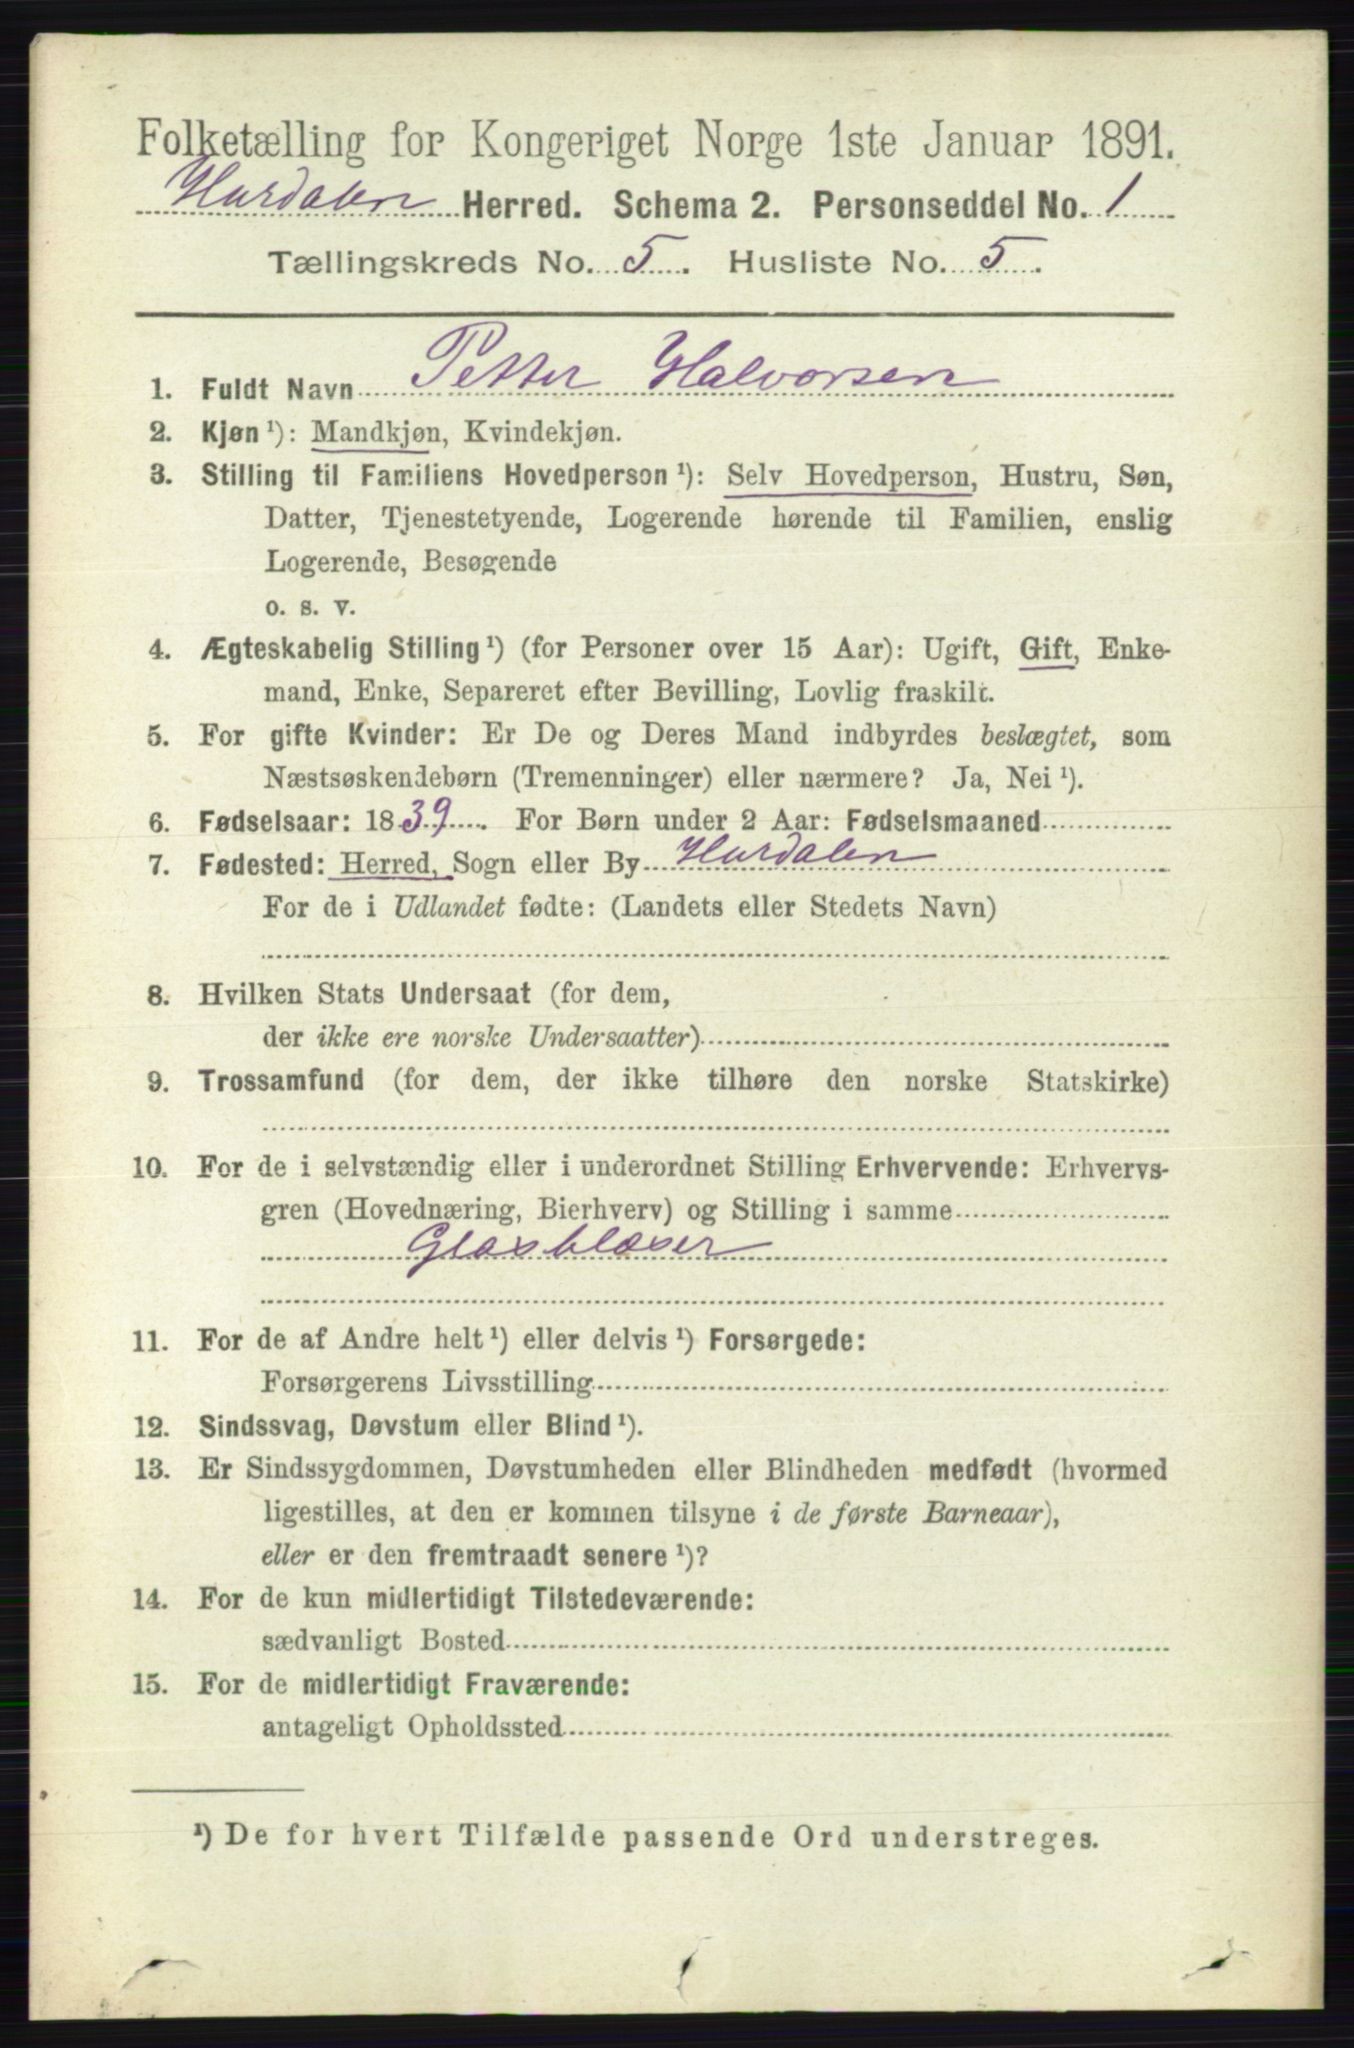 Folketælling for Kongeriget Norge 1ste Januar 1891.
Hurdalen Herred. Schema 2. Personseddel No. 1
Tællingskreds No. 5. Husliste No. 5.
1. Fuldt Navn Petter Halvorsen
2. Kjøn¹): Mandkjøn, Kvindekjøn.
3. Stilling til Familiens Hovedperson¹): Selv Hovedperson, Hustru, Søn,
Datter, Tjenestetyende, Logerende hørende til Familien, enslig
Logerende, Besøgende
o. s. v.
4. Ægteskabelig Stilling¹) (for Personer over 15 Aar): Ugift, Gift, Enke-
mand, Enke, Separeret efter Bevilling, Lovlig fraskilt.
5. For gifte Kvinder: Er De og Deres Mand indbyrdes beslægtet, som
Næstsøskendebørn (Tremenninger) eller nærmere? Ja, Nei¹).
6. Fødselsaar: 1839. For Børn under 2 Aar: Fødselsmaaned
7. Fødested: Herred, Sogn eller By Hurdalen
For de i Udlandet fødte: (Landets eller Stedets Navn)
8. Hvilken Stats Undersaat (for dem,
der ikke ere norske Undersaatter)
9. Trossamfund (for dem, der ikke tilhøre den norske Statskirke)
10. For de i selvstændig eller i underordnet Stilling Erhvervende: Erhvervs-
gren (Hovednæring, Bierhverv) og Stilling i samme
Glasblaser
11. For de af Andre helt¹) eller delvis¹) Forsørgede:
Forsørgerens Livsstilling
12. Sindssvag, Døvstum eller Blind¹).
13. Er Sindssygdommen, Døvstumheden eller Blindheden medfødt (hvormed
ligestilles, at den er kommen tilsyne i de første Barneaar),
eller er den fremtraadt senere¹)?
14. For de kun midlertidigt Tilstedeværende:
sædvanligt Bosted
15. For de midlertidigt Fraværende:
antageligt Opholdssted
¹) De for hvert Tilfælde passende Ord understreges.